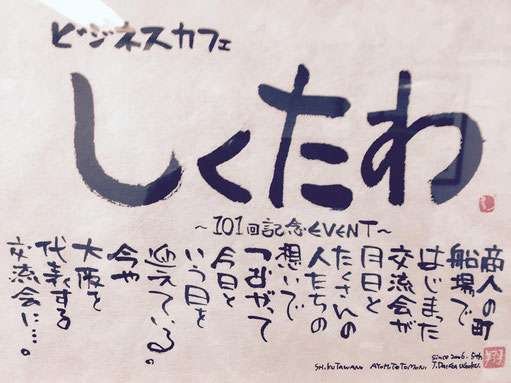 ビジネスカフェ
しくたわ
〜101回記念EVENT〜
商人の町
船場で
はじまった
交流会が
月日と
たくさんの
人たちの
想いで
つながって
今日と
いう日を
迎えている。
今や
大阪を
代表する
交流会に…。
since 2006. 5th